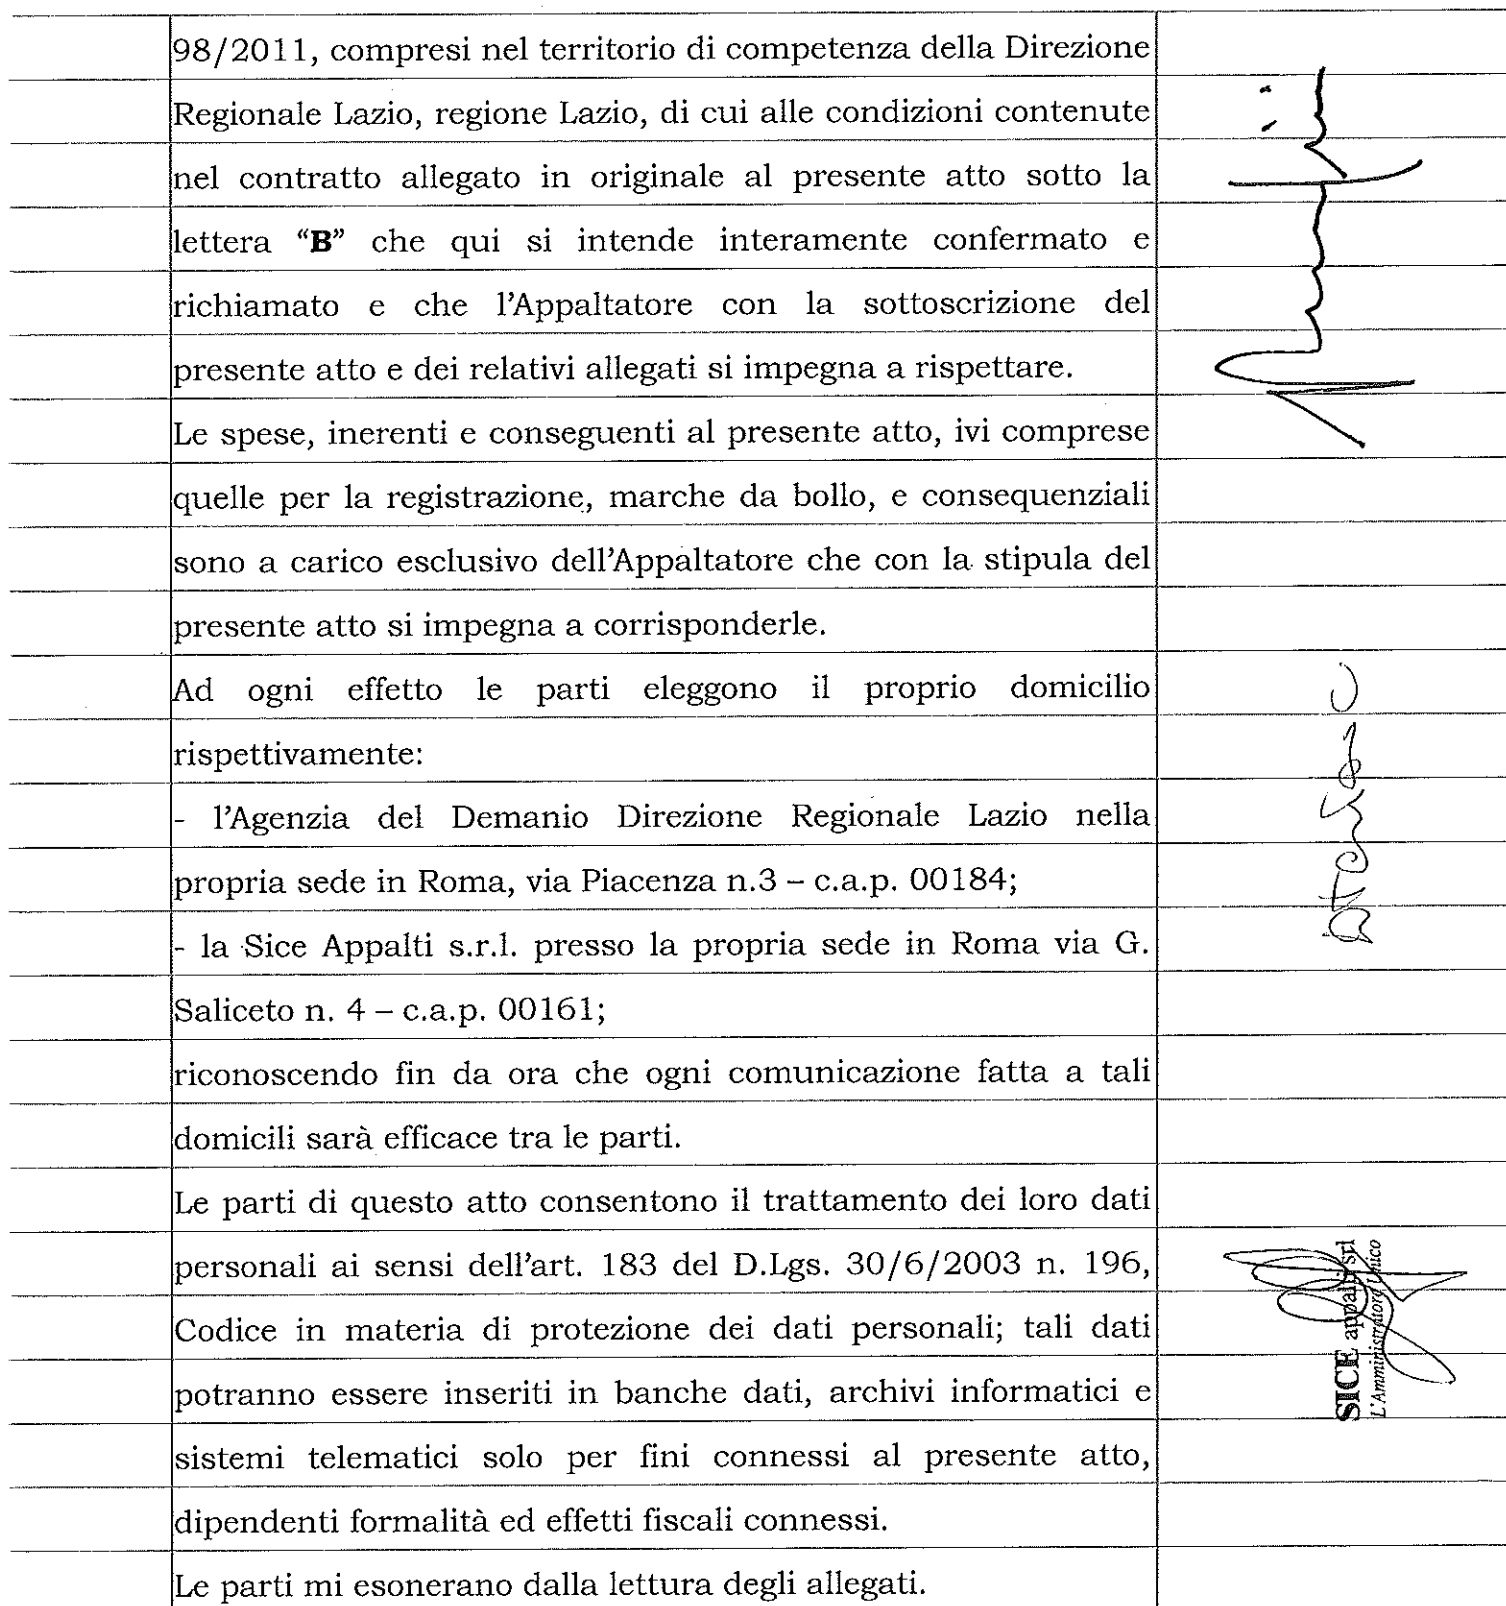 98/2011, compresi nel territorio di competenza della Direzione
Regionale Lazio, regione Lazio, di cui alle condizioni contenute
nel contratto allegato in originale al presente atto sotto la
lettera “B” che qui si intende interamente confermato e
richiamato e che l'Appaltatore con la sottoscrizione del
presente atto e dei relativi allegati si impegna a rispettare.
Le spese, inerenti e conseguenti al presente atto, ivi comprese
quelle per la registrazione, marche da bollo, e consequenziali
sono a carico esclusivo dell'Appaltatore che con la stipula del
presente atto si impegna a corrisponderle.
Ad ogni effetto le parti eleggono il proprio domicilio
rispettivamente:
- l'Agenzia del Demanio Direzione Regionale Lazio nella
propria sede in Roma, via Piacenza n.3 – c.a.p. 00184;
- la Sice Appalti s.r.l. presso la propria sede in Roma via G.
Saliceto n. 4 – c.a.p. 00161;
riconoscendo fin da ora che ogni comunicazione fatta a tali
domicili sarà efficace tra le parti.
Le parti di questo atto consentono il trattamento dei loro dati
personali ai sensi dell'art. 183 del D.Lgs. 30/6/2003 n. 196,
Codice in materia di protezione dei dati personali; tali dati
potranno essere inseriti in banche dati, archivi informatici e
sistemi telematici solo per fini connessi al presente atto,
dipendenti formalità ed effetti fiscali connessi.
Le parti mi esonerano dalla lettura degli allegati.
SICE appalti srl
L'Amministratore Unico